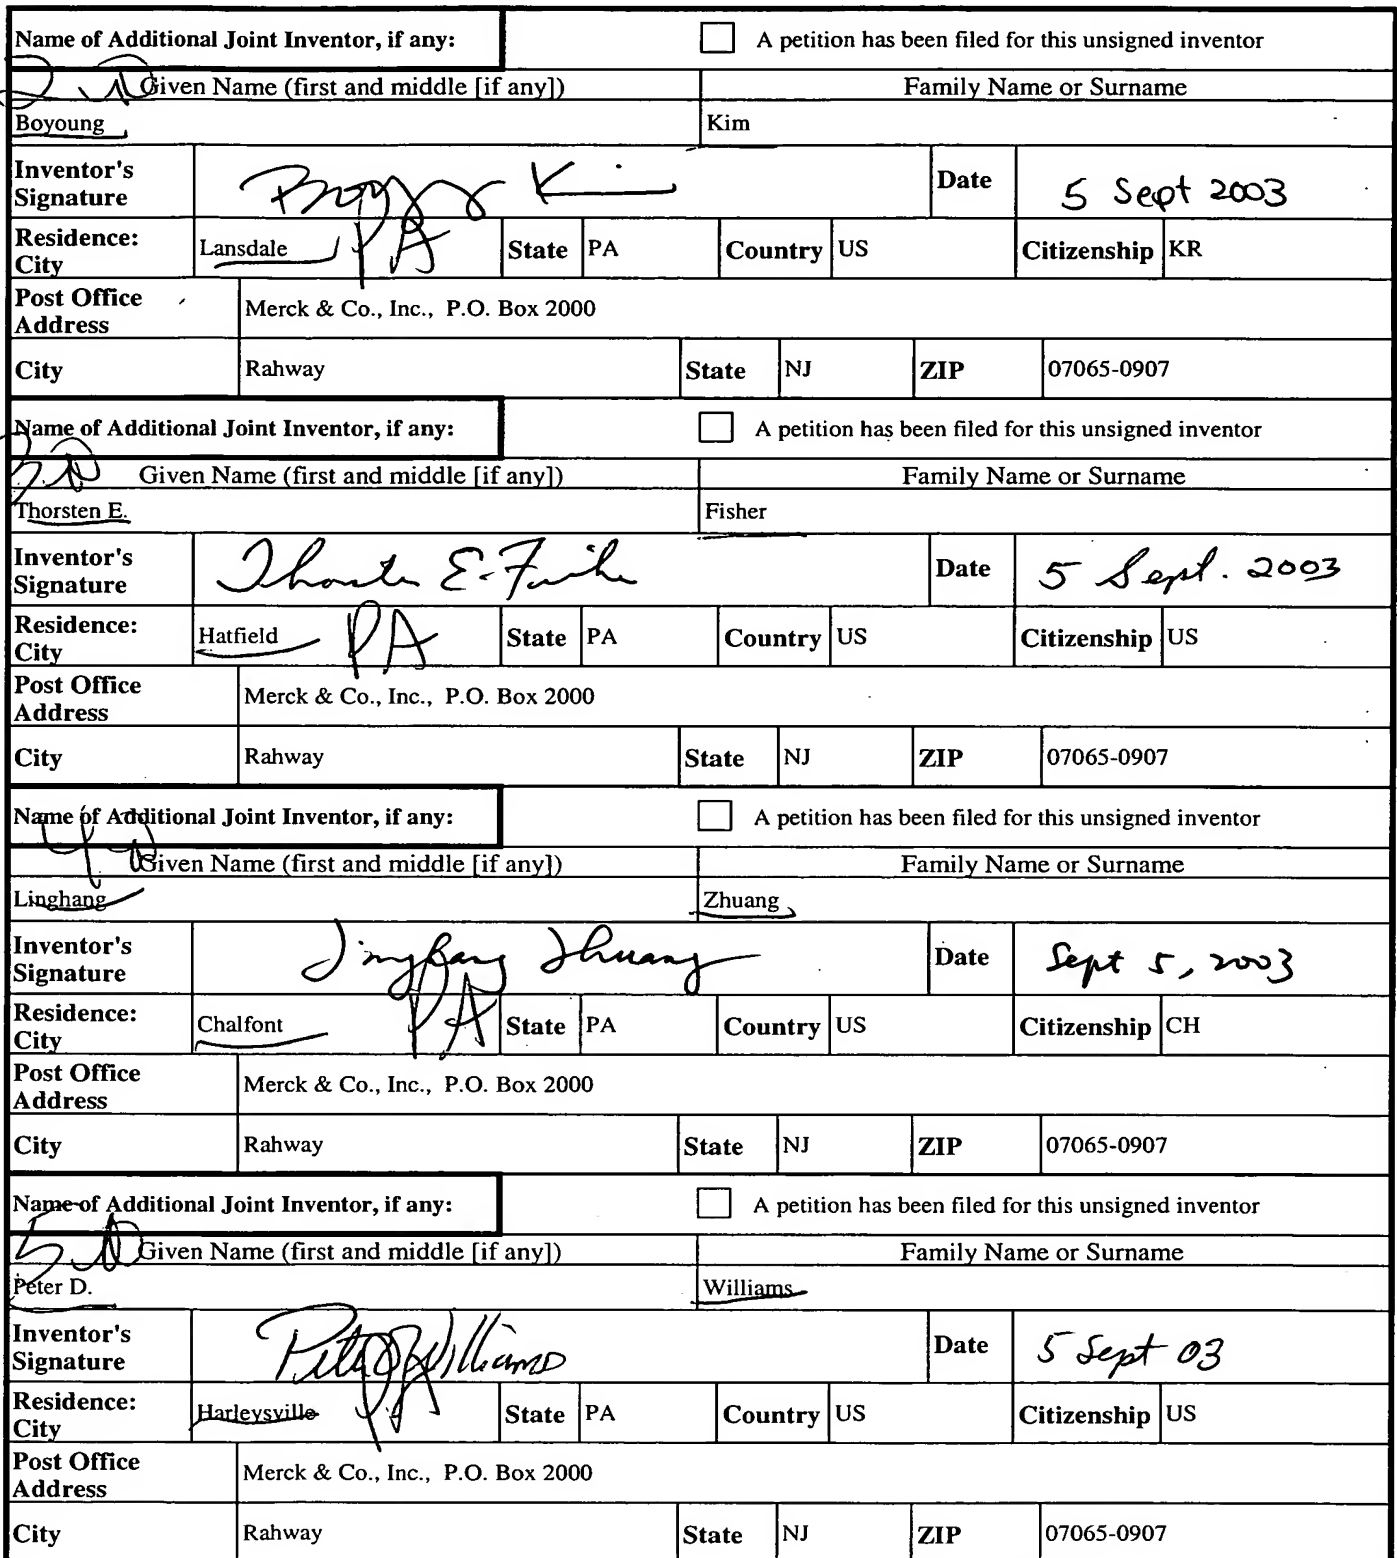 Name of Additional Joint Inventor, if any: A petition has been filed for this unsigned inventor
Given Name (first and middle [if any]) Family Name or Surname
Boyoung Kim
Inventor's Signature Kim Date 5 Sept 2003
Residence: City Lansdale PA State PA Country US Citizenship KR
Post Office Address Merck & Co., Inc., P.O. Box 2000
City Rahway State NJ ZIP 07065-0907
Name of Additional Joint Inventor, if any: A petition has been filed for this unsigned inventor
Given Name (first and middle [if any]) Family Name or Surname
Thorsten E. Fisher
Inventor's Signature Thorsten E. Fisher Date 5 Sept. 2003
Residence: City Hatfield PA State PA Country US Citizenship US
Post Office Address Merck & Co., Inc., P.O. Box 2000
City Rahway State NJ ZIP 07065-0907
Name of Additional Joint Inventor, if any: A petition has been filed for this unsigned inventor
Given Name (first and middle [if any]) Family Name or Surname
Linghang Zhuang
Inventor's Signature Linghang Zhuang Date Sept 5, 2003
Residence: City Chalfont PA State PA Country US Citizenship CH
Post Office Address Merck & Co., Inc., P.O. Box 2000
City Rahway State NJ ZIP 07065-0907
Name of Additional Joint Inventor, if any: A petition has been filed for this unsigned inventor
Given Name (first and middle [if any]) Family Name or Surname
Peter D. Williams
Inventor's Signature Peter D. Williams Date 5 Sept 03
Residence: City Harleysville State PA Country US Citizenship US
Post Office Address Merck & Co., Inc., P.O. Box 2000
City Rahway State NJ ZIP 07065-0907